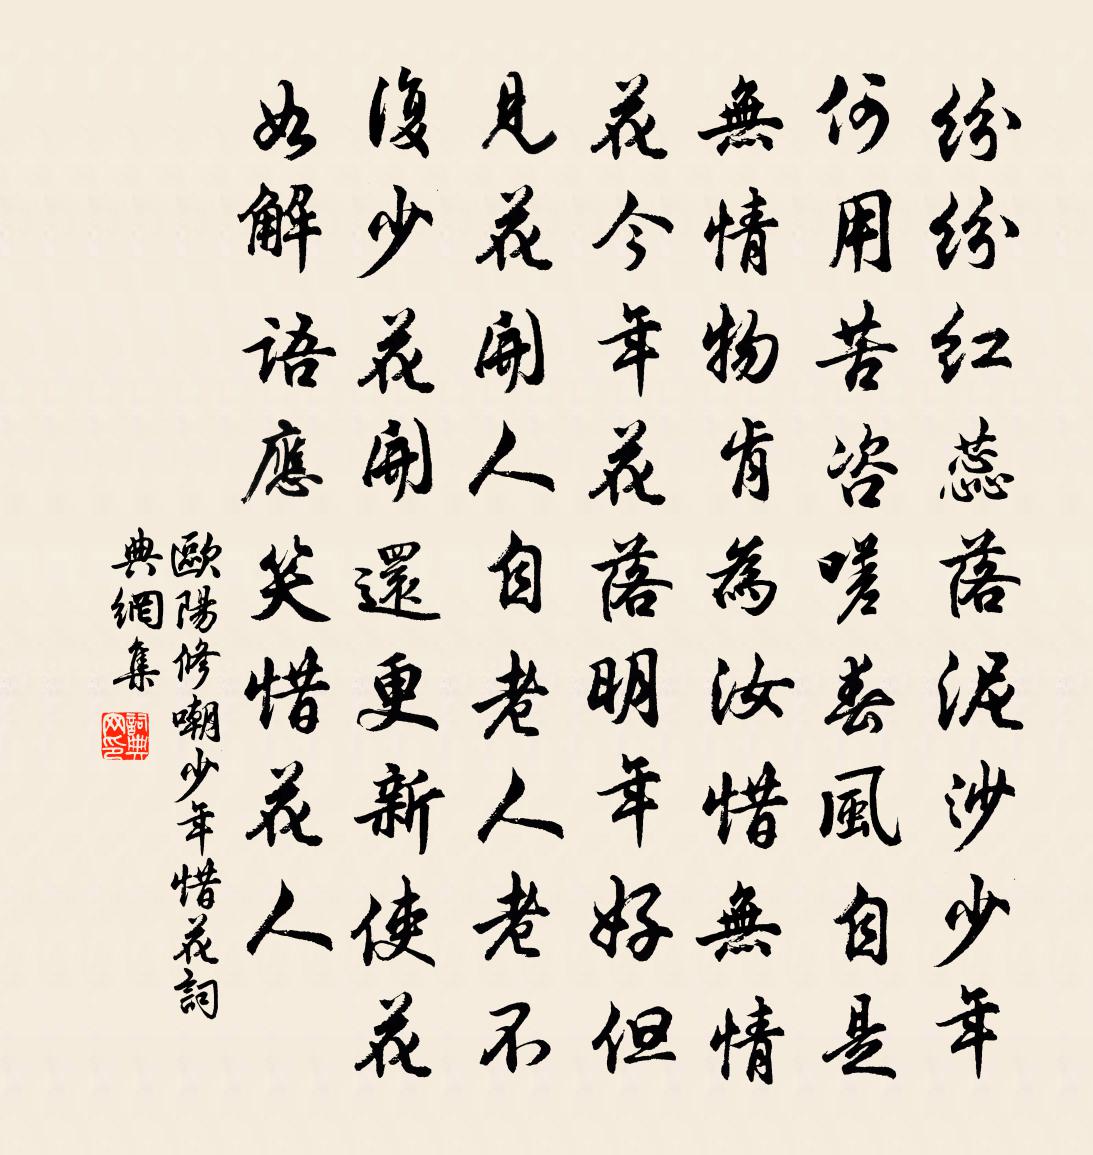 紛紛紅蕊落泥沙少年
何用苦咨嗟春風自是
無情物肯為汝惜無情
花今年花落明年好但
見花開人自老人老不
復少花開還更新使花
如解語應笑惜花人
歐陽修嘲少年惜花詞
典網集
詞典网印